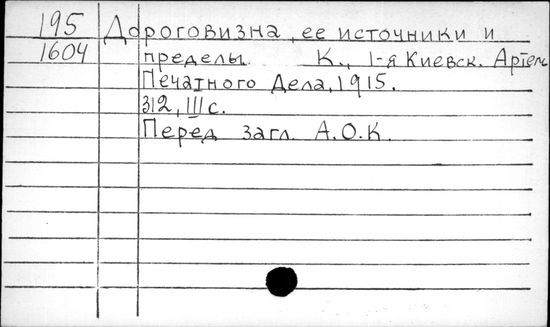 195 Дороговизна, ее источники и
1604 пределы. К., 1-я Киевск. Артель
Печатного Дела, 1915.
312, III с.
Перед загл. А.О.К.